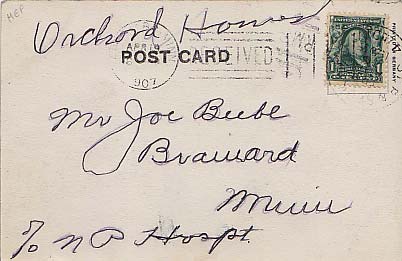 HEP
Orchard Homes
APR 19
1907
POST CARD
RECEIVED
Mr Joe Beebe
Brainard
Minn
c/o N P Hospt.